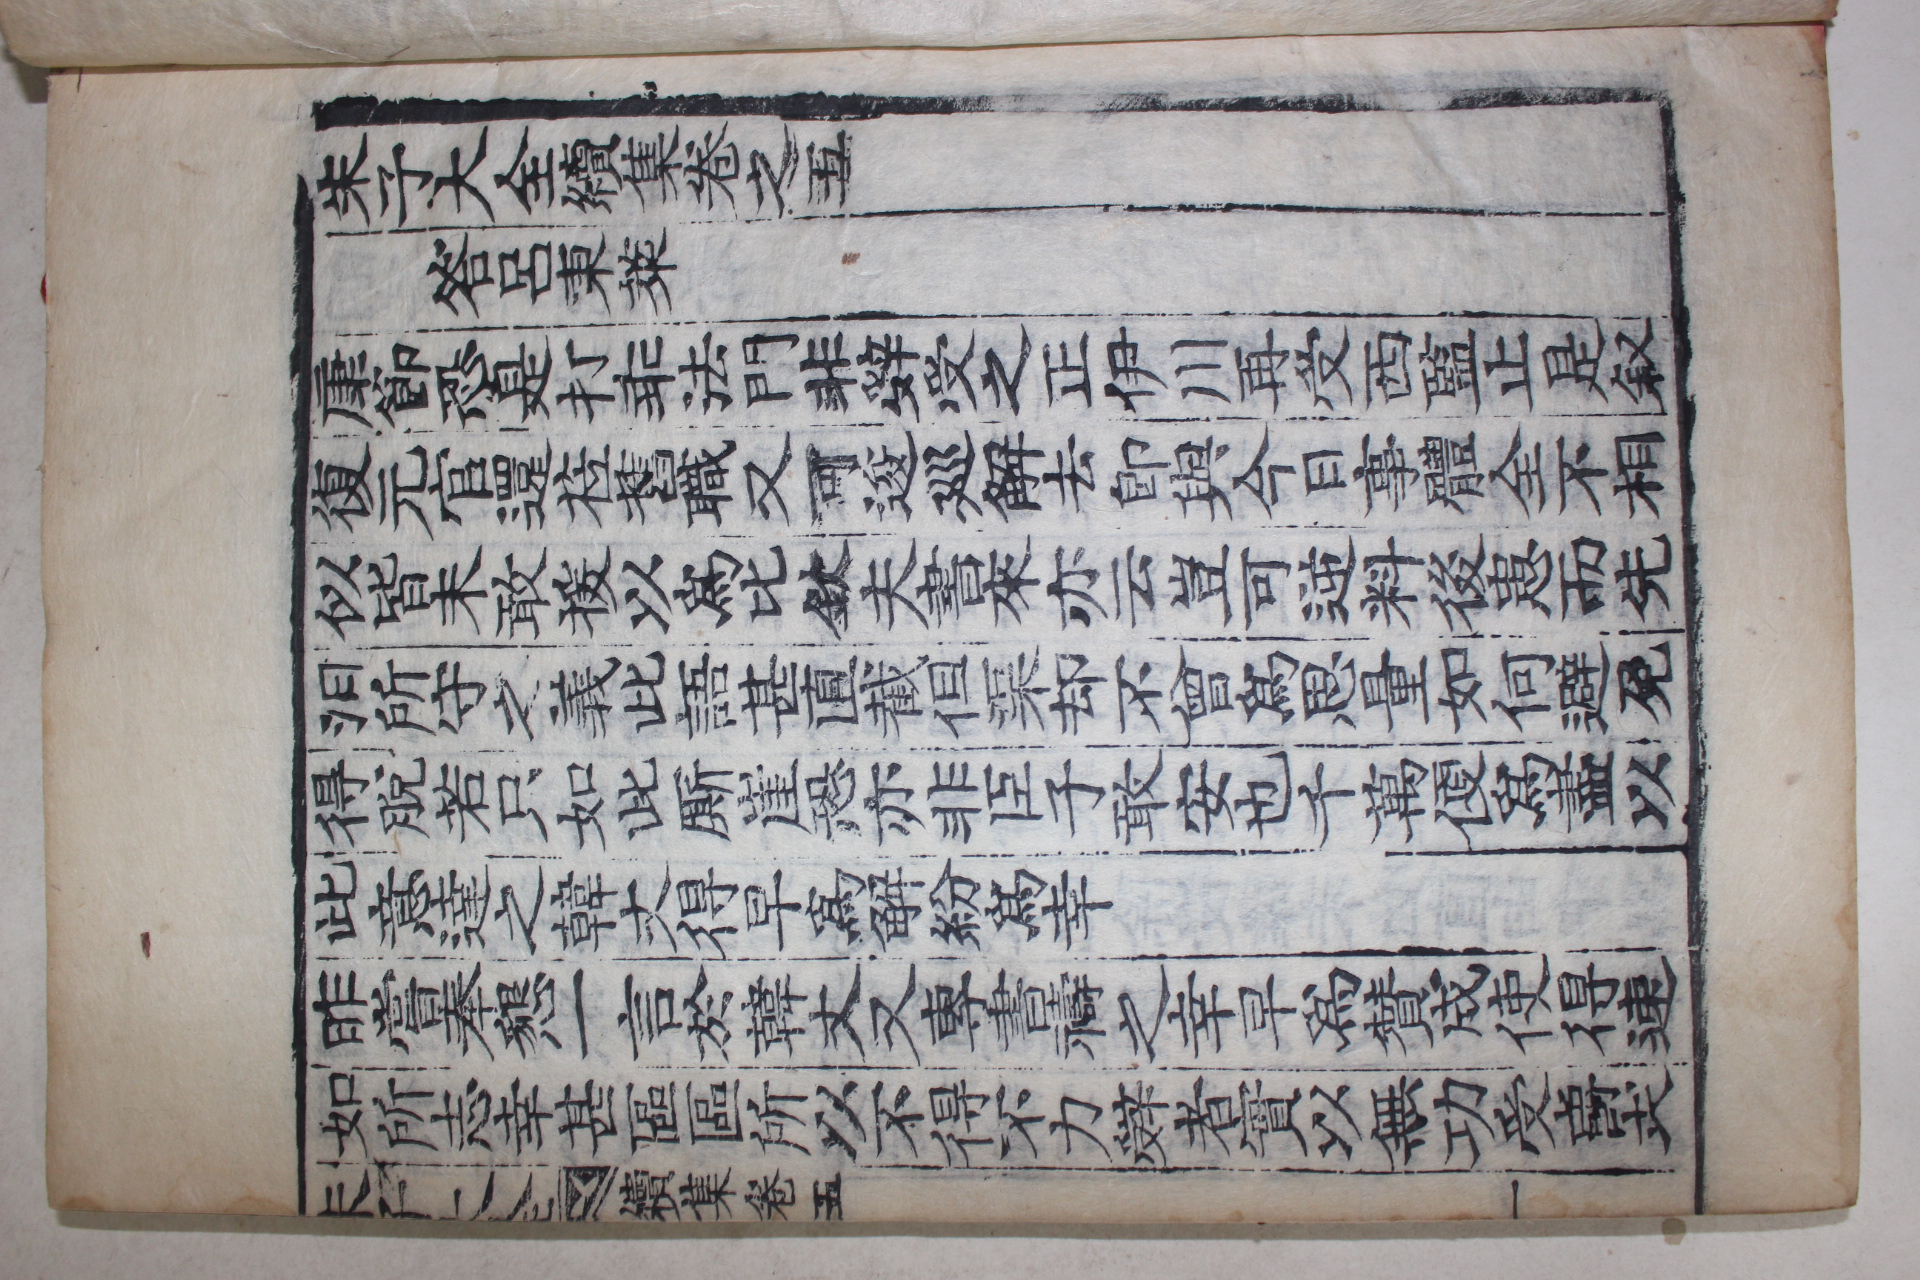 朱子大全續集卷之五
答呂東萊
康節恐是打乖法門非辭受之正伊川再受西監止是敘
復元官還莅舊職又可逡巡解去卽與今日事體全不相
似皆未敢援以爲比欽夫書來亦云豈可逆料後患而先
汩所守之義此語甚直截但渠却不曾爲思量如何避免
得脫若只如此厮崖恐亦非臣子敢安也千萬便爲盡以
此意達之韓丈得早爲解紛爲幸
昨嘗奉懇一言於韓丈又專書禱之幸早爲贊成使得速
如所志幸甚區區所以不得不力辭者實以無功受賞
朱子大全 續集卷五 一